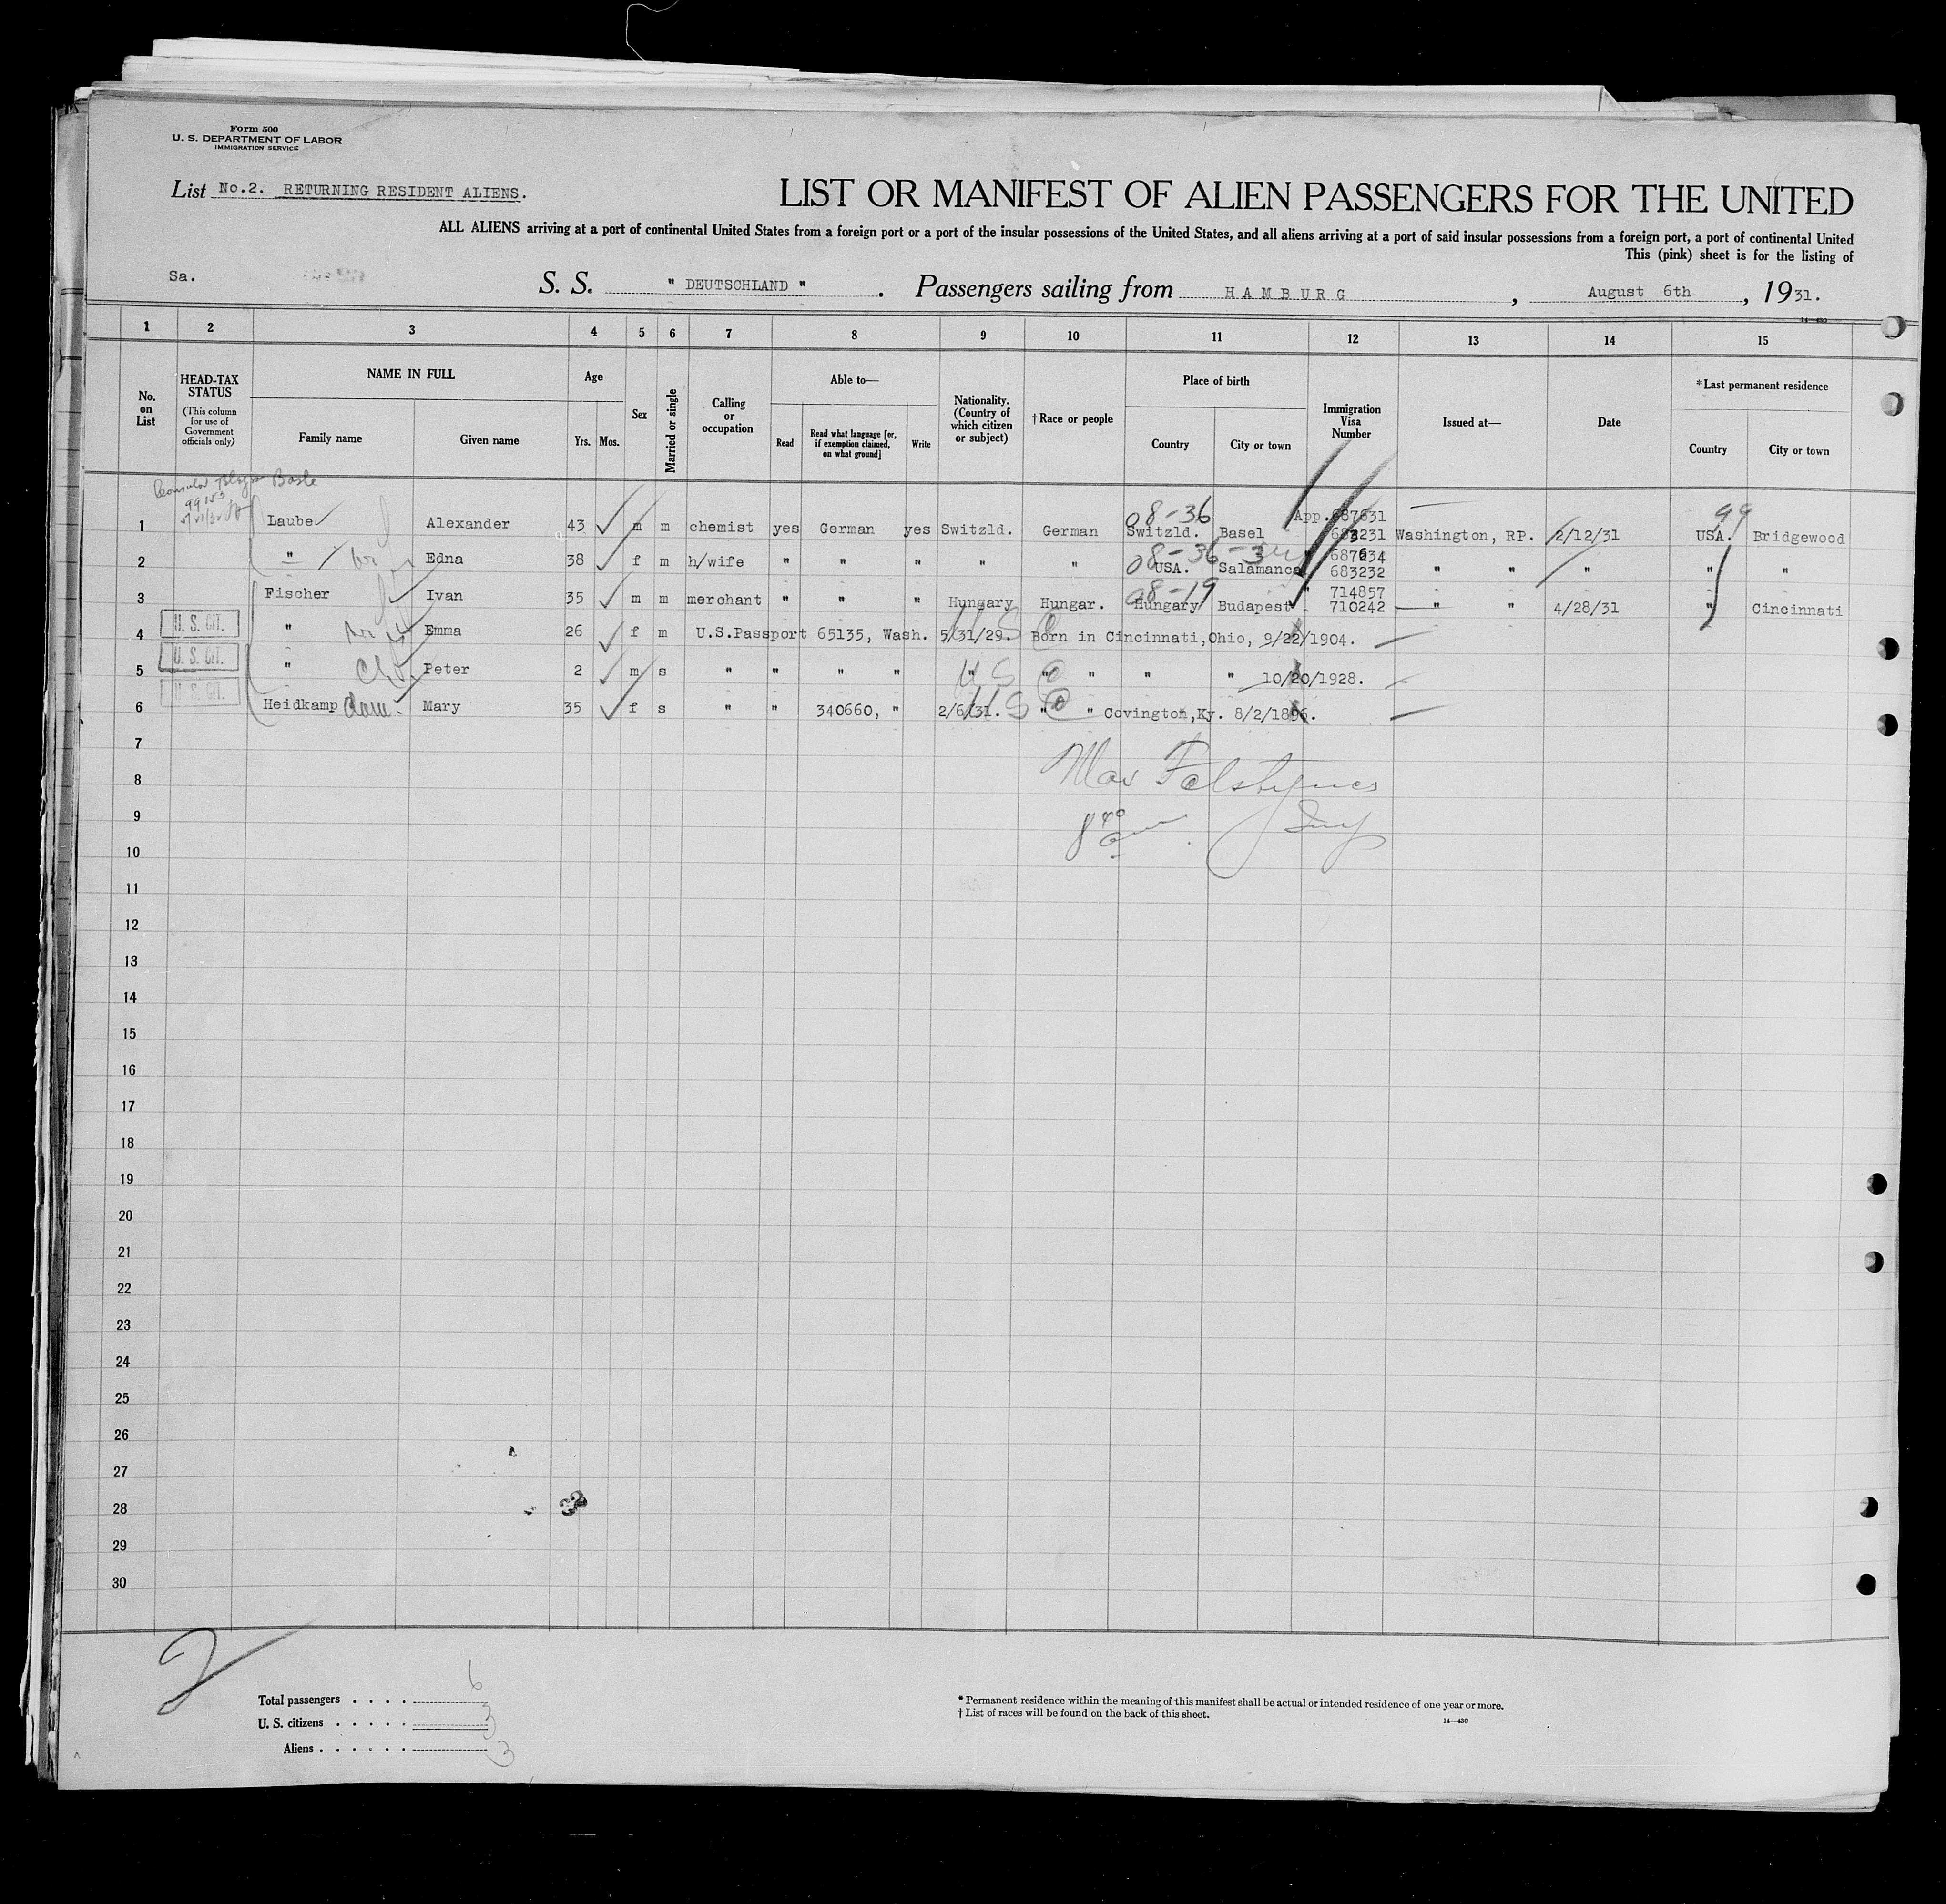 Form 500
U. S. DEPARTMENT OF LABOR
IMMIGRATION SERVICE
List No.2. RETURNING RESIDENT ALIENS.
LIST OR MANIFEST OF ALIEN PASSENGERS FOR THE UNITED
ALL ALIENS arriving at a port of continental United States from a foreign port or a port of the insular possessions of the United States, and all aliens arriving at a port of said insular possessions from a foreign port, a port of continental United
This (pink) sheet is for the listing of
Sa. S. S. " DEUTSCHLAND ". Passengers sailing from HAMBURG, August 6th, 1931.
14—430
1 2 3 4 5 6 7 8 9 10 11 12 13 14 15
No. on List
HEAD-TAX STATUS
(This column for use of Government officials only)
NAME IN FULL
Family name Given name
Age
Yrs. Mos.
Sex
Married or single
Calling or occupation
Able to—
Read Read what language [or, if exemption claimed, on what ground] Write
Nationality. (Country of which citizen or subject)
†Race or people
Place of birth
Country City or town
Immigration Visa Number
Issued at—
Date
*Last permanent residence
Country City or town
Basle
99153
08-36 99
App.687631
1 Laube Alexander 43 m m chemist yes German yes Switzld. German Switzld. Basel 683231 Washington, RP. 2/12/31 USA. Bridgewood
08-36
" 687634
2 " Edna 38 f m h/wife " " " " " USA. Salamanca 683232 " " " " "
08-19
" 714857
3 Fischer Ivan 35 m m merchant " " " Hungary Hungar. Hungary Budapest 710242 " " 4/28/31 " Cincinnati
U. S. CIT.
4 " Emma 26 f m U.S.Passport 65135, Wash. 5/31/29. Born in Cincinnati,Ohio, 9/22/1904.
US
U. S. CIT.
5 " Ch Peter 2 m s " " " " " " " " " 10/20/1928.
US
U. S. CIT.
6 Heidkamp Mary 35 f s " " 340660, " 2/6/31. " " Covington,Ky. 8/2/1896.
US
7
8
9
10
11
12
13
14
15
16
17
18
19
20
21
22
23
24
25
26
27
28
29
30
2
Total passengers . . . . 6
U. S. citizens . . . . . 3
Aliens . . . . . . 3
* Permanent residence within the meaning of this manifest shall be actual or intended residence of one year or more.
† List of races will be found on the back of this sheet.
14—430